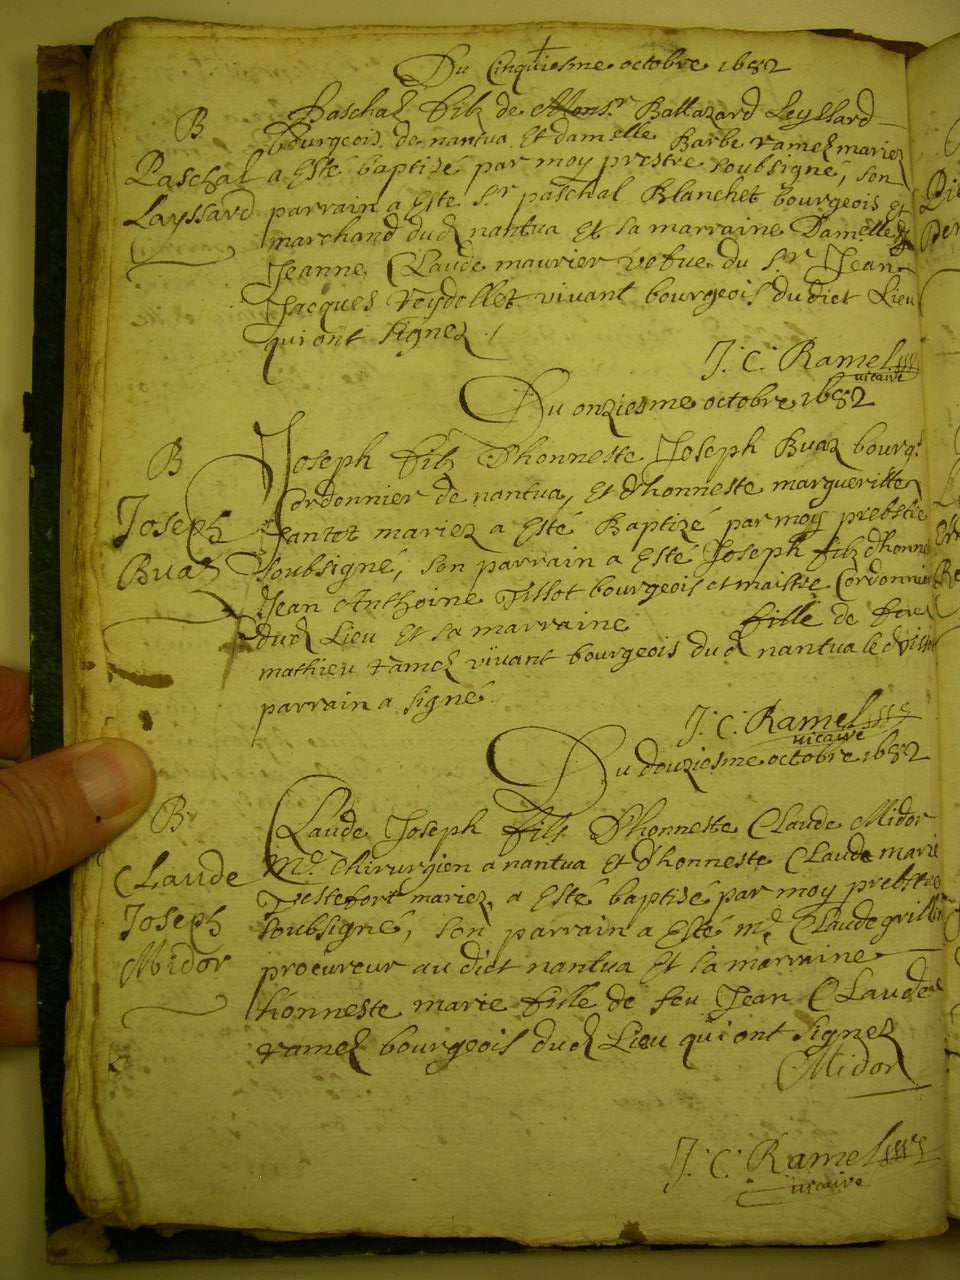 Du Cinquiesme octobre 1682
B
Paschal
Layssard
Paschal filz de Monsr. Baltazard Leyssard
bourgeois de nantua et damelle Barbe ramel mariez
a esté baptisé par moy prestre soubsigné, son
parrain a esté sr. paschal Blanchet bourgeois et
marchand dud. nantua et sa marraine Damelle
Jeanne Claude maurier vefue du sr. Jean
Jacques vivant bourgeois dudict Lieu
qui ont signez
J. C. Ramel
vicaire
Du onziesme octobre 1682
B
Joseph
Buaz
Joseph filz d'honneste Joseph Buaz bourgs.
Cordonnier de nantua, et d'honneste margueritte
mariez a esté Baptizé par moy prebstre
soubsigné, son parrain a esté Joseph filz d'honne
Jean Anthoine Tissot bourgeois et maistre Cordonnie
dud. Lieu et sa marraine fille de feu
mathieu ramel vivant bourgeois dud. nantua led. Tissot
parrain a signé
J. C. Ramel
vicaire
Du douziesme octobre 1682
B
Claude
Joseph
Midor
Claude Joseph fils d'honneste Claude Midor
Me. Chirurgien a nantua et d'honneste Claude marie
Testefort mariez, a esté baptisé par moy prebstre
soubsigné, son parrain a esté me. Claude
procureur au dict nantua et sa marraine
honneste marie fille de feu Jean Claude
ramel bourgeois dud. Lieu qui ont signez
Midor
J. C. Ramel
vicaire